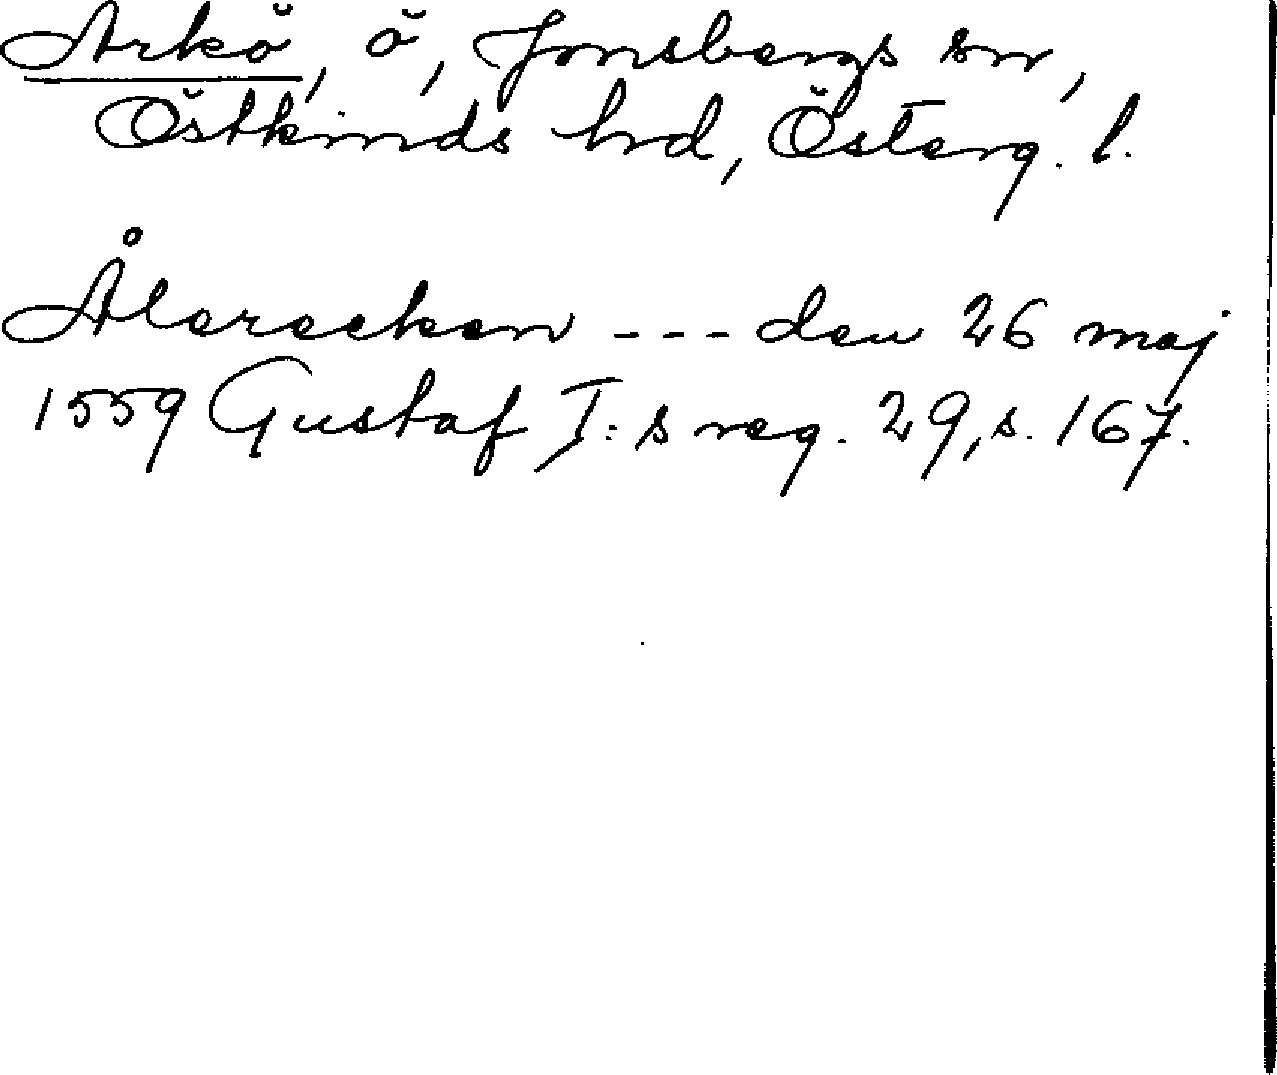 Arkö, ö, Jonsbergs sn,
Östkinds hrd, Österg. l.
Ålerecken --- den 26 maj
1559 Gustaf I:s reg. 29, s. 167.